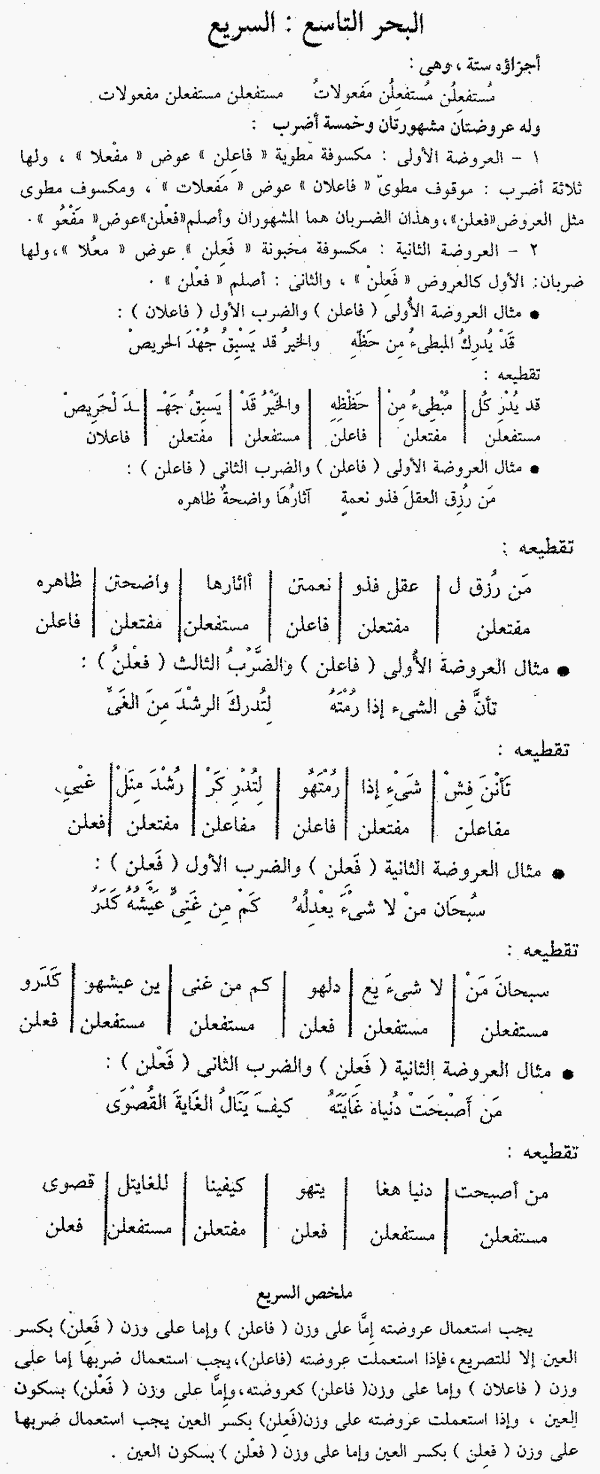 البحر التاسع : السريع
أجزاؤه ستة ، وهى :
مُستفعِلُن مُستفعِلُن مَفعولاتُ مستفعلن مستفعلن مفعولات
وله عروضتان مشهورتان وخمسة أضرب :
١ – العروضة الأولى : مكسوفة مطوية « فاعِلن » عوض « مفْعلا » ، ولها
ثلاثة أضرب : موقوف مطوىّ « فاعلان » عوض « مَفعلات » ، ومكسوف مطوى
مثل العروض«فعلن»، وهذان الضربان هما المشهوران وأصلم«فعْلن»عوض« مَفْعُو » .
٢ – العروضة الثانية : مكسوفة مخبونة « فَعِلن » عوض « معُلا »،ولها
ضربان: الأول كالعروض « فَعِلنْ » ، والثانى : أصلم « فعْلن » .
● مثال العروضة الأُولى ( فاعلن ) والضرب الأول ( فاعلان ) :
قَدْ يُدرِكُ المبطىءُ مِن حَظِّهِ والخيرُ قد يَسْبِقُ جُهْدَ الحريصْ
تقطيعه :
قد يُدْرِ كُل | مُبْطِىءُ مِنْ | حَظْظِهِ | والخَيْرُ قَدْ | يَسبِقُ جَهْـ | ـدَ لْحَرِيصْ
مستفعلن | مفتعلن | فاعلن | مستفعلن | مفتعلن | فاعلان
● مثال العروضة الأولى ( فاعلن ) والضرب الثانى ( فاعلن ) :
مَن رُزِق العقلَ فذو نعمةٍ آثارُهَا واضحةٌ ظاهره
تقطيعه :
مَن رُزق ل | عقل فذو | نعمتن | أاثارها | واضحتن | ظاهره
مفتعلن | مفتعلن | فاعلن | مستفعلن | مفتعلن | فاعلن
● مثال العروضة الأُولى ( فاعلن ) والضَّرْبُ الثالث ( فعْلنُ ) :
تأنَّ فى الشىء إذا رُمْتَهُ لِتُدركَ الرشْدَ مِنَ الغَىِّ
تقطيعه :
تَأنْنَ فِشْ | شَىْءِ إذا | رُمْتَهُو | لِتُدْرِ كَرْ | رُشْدَ مِنَلْ | غىْيِ
مفاعلن | مفتعلن | فاعلن | مفاعلن | مفتعلن | فعلن
● مثال العروضة الثانية ( فَعِلن ) والضرب الأول ( فَعِلن ) :
سُبحَان منْ لا شىْءَ يعْدِلُهُ كَمْ مِن غَنِىٍّ عَيْشُهُ كَدَرُ
تقطيعه :
سبحانَ مَنْ | لا شىءَ يع | دلهو | كم من غنى | ين عيشهو | كَدَرو
مستفعلن | مستفعلن | فعلن | مستفعلن | مستفعلن | فعلن
● مثال العروضة الثانية ( فَعِلن ) والضرب الثانى ( فَعْلن ) :
مَن أَصْبحَتْ دُنياه غَايَتَهُ كيفَ يَنَالُ الغَايةَ القُصْوَى
تقطيعه :
من أصبحت | دنيا هغا | يتهو | كيفينا | للغايتل | قصوى
مستفعلن | مستفعلن | فعلن | مفتعلن | مستفعلن | فعلن
ملخص السريع
يجب استعمال عروضته إمَّا على وزن ( فاعلن ) وإما على وزن ( فَعِلن) بكسر
العين إلا للتصريع، فإذا استعملت عروضته (فاعلن)،يجب استعمال ضربها إما على
وزن ( فاعلان ) وإما على وزن( فاعلن) كعروضته،وإمَّا على وزن ( فَعْلن) بسكون
العين ، وإذا استعملت عروضته على وزن(فَعِلن) بكسر العين يجب استعمال ضربها
على وزن ( فعِلن ) بكسر العين وإما على وزن ( فعْلن ) بسكون العين .